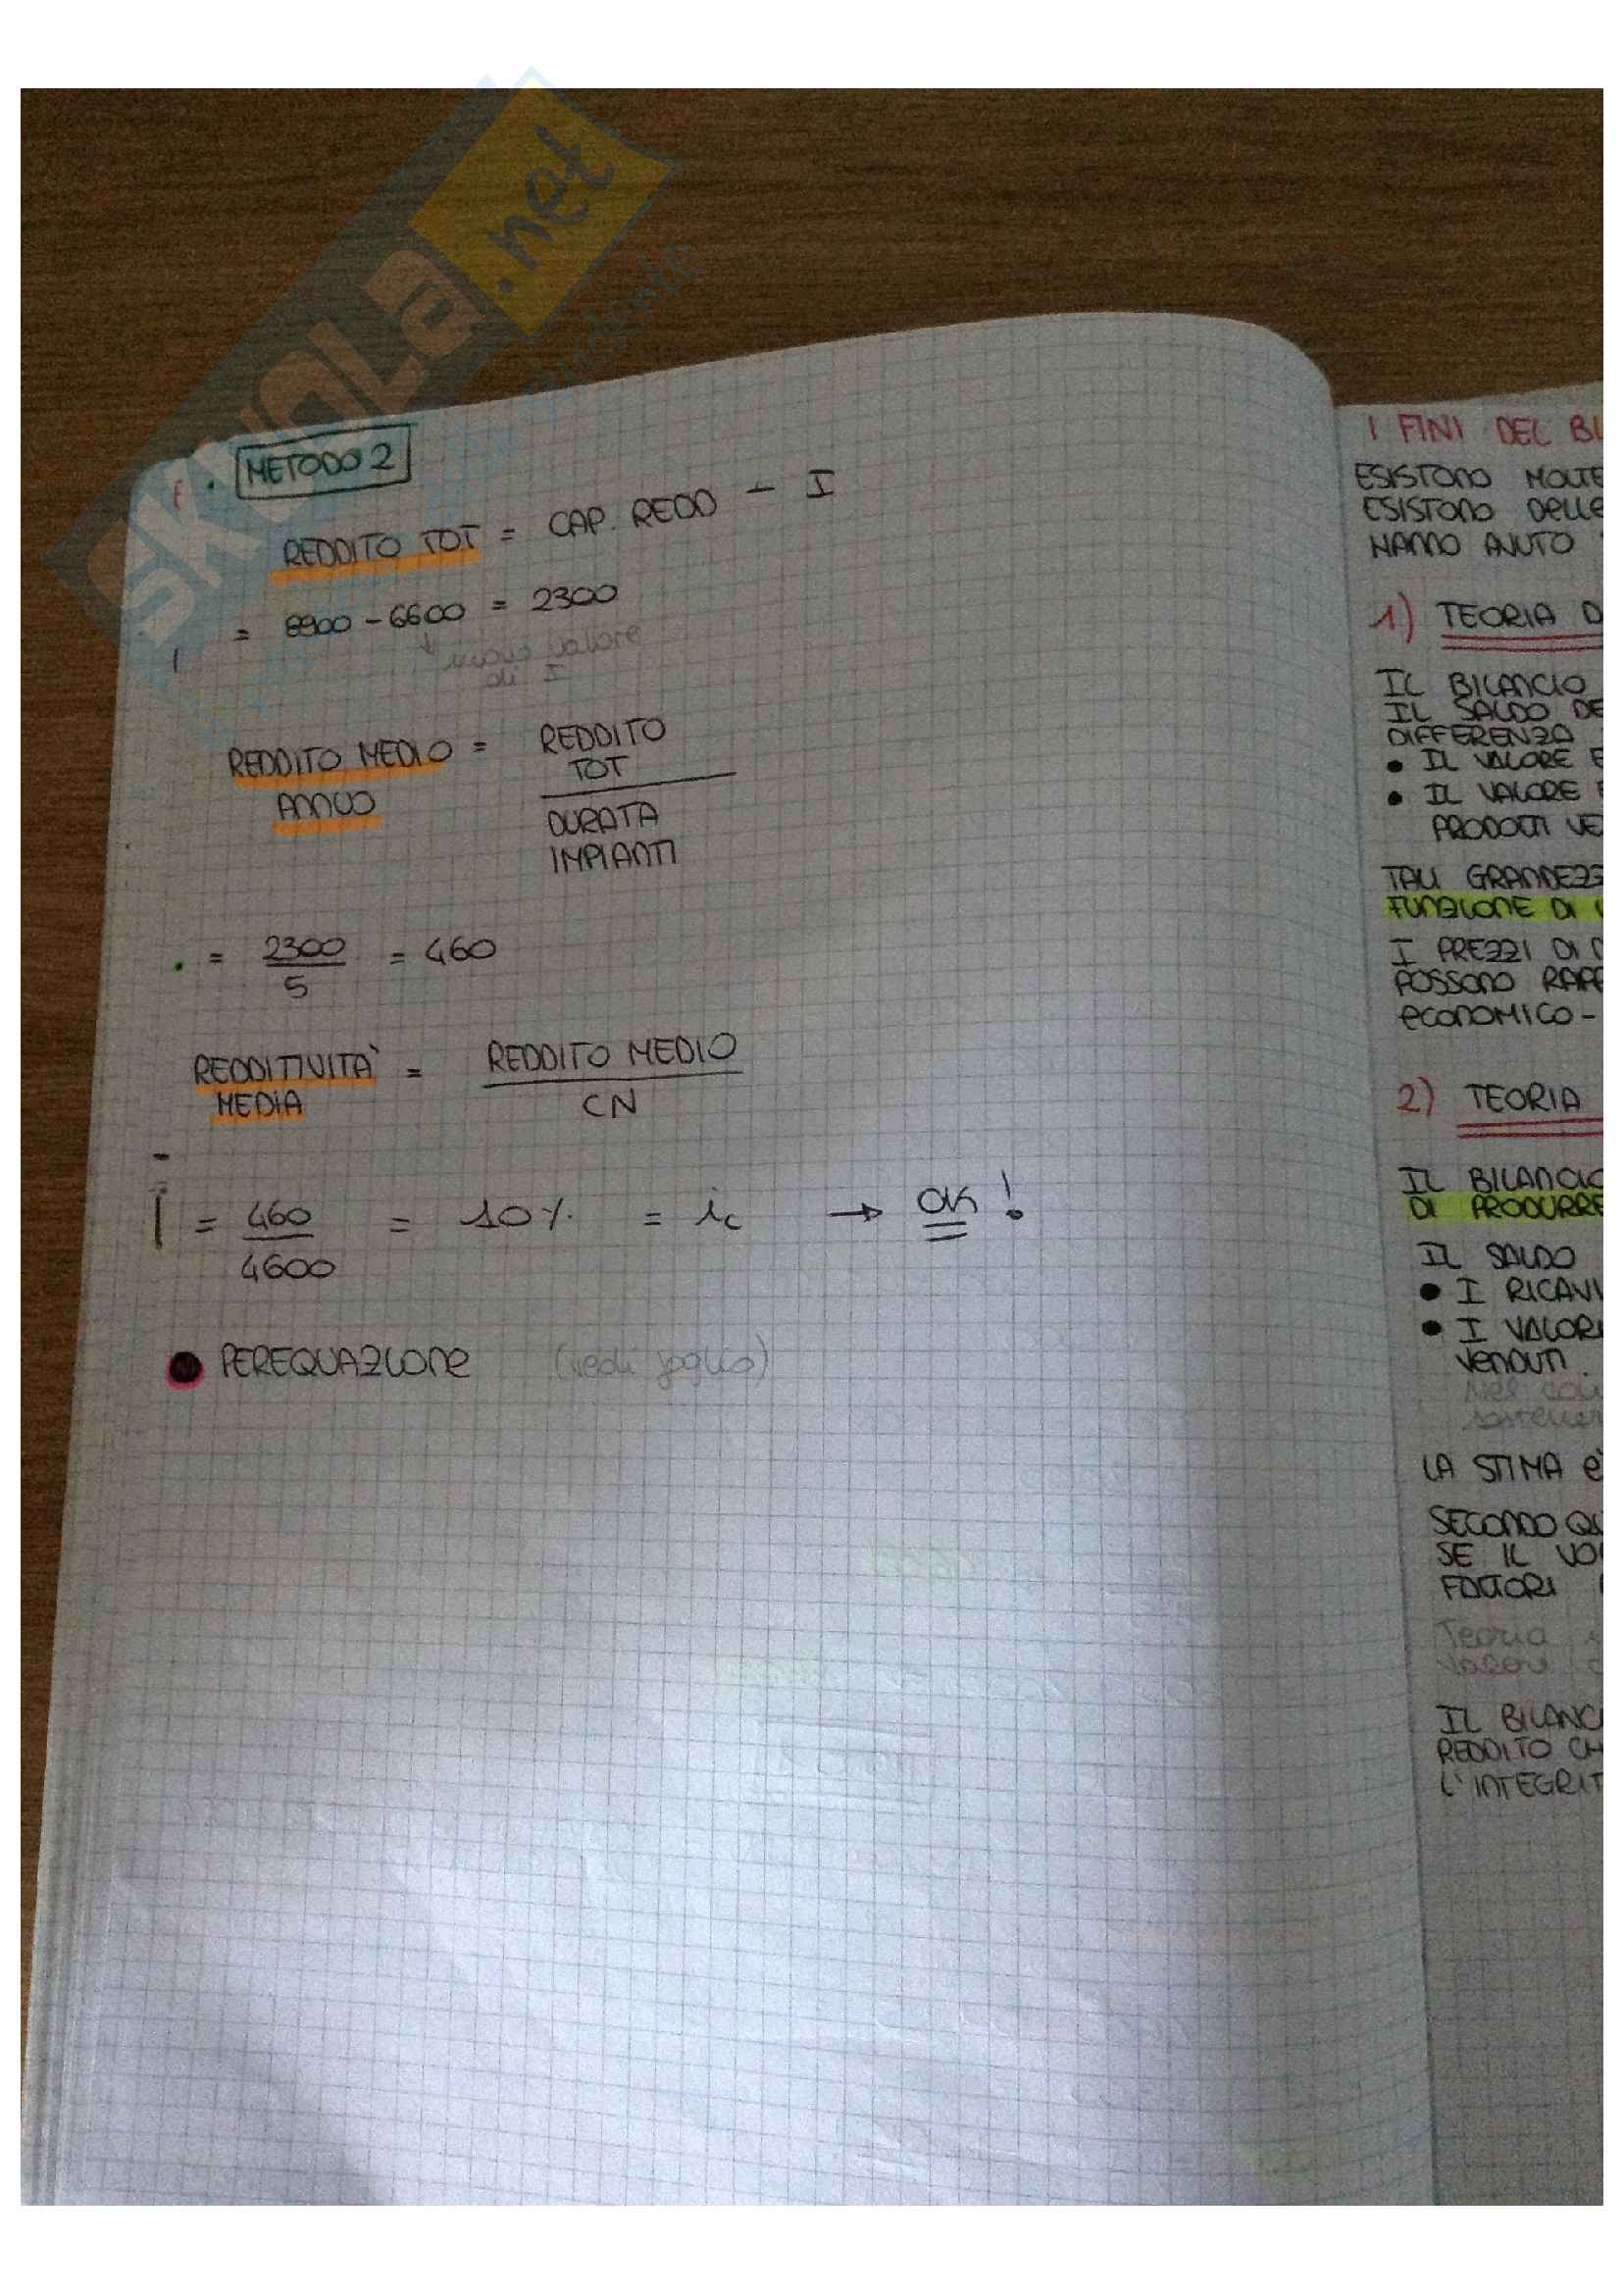 SKUOLA.net
METODO 2
REDDITO TOT = CAP. REDD - I
= 8900 - 6600 = 2300
↓ nuovo valore
di I
REDDITO MEDIO = REDDITO
TOT
ANNUO
DURATA
IMPIANTI
= 2300 = 460
5
REDDITIVITA' = REDDITO MEDIO
MEDIA
CN
= 460 = 10% = ic → OK!
4600
PEREQUAZIONE (vedi foglio)
I FINI DEL BI
ESISTONO MOLTE
ESISTONO DELLE
HANNO AVUTO
1) TEORIA D
IL BILANCIO
IL SALDO DE
DIFFERENZA
• IL VALORE E
• IL VALORE
PRODOTTI VE
TALI GRANDEZZ
FUNZIONE DI
I PREZZI DI
POSSONO RAPP
ECONOMICO-
2) TEORIA
IL BILANCIO
DI PRODURRE
IL SALDO
• I RICAVI
• I VALORI
VENDUTI.
Nel
LA STIMA E'
SECONDO QU
SE IL VO
FATTORI
Teoria
Valore
IL BILANC
REDDITO CH
L'INTEGRIT